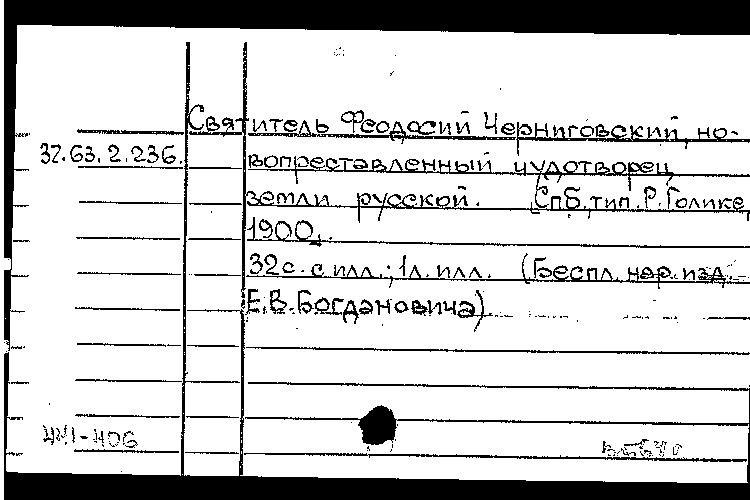 Святитель Феодосий Черниговский, но-
37.63.2.236. вопреставленный чудотворец
земли русской. СПб, тип. Р. Голике,
1900.
32с. с илл.; 1л. илл. (Беспл. нар. изд.
Е.В. Богдановича)
441-406